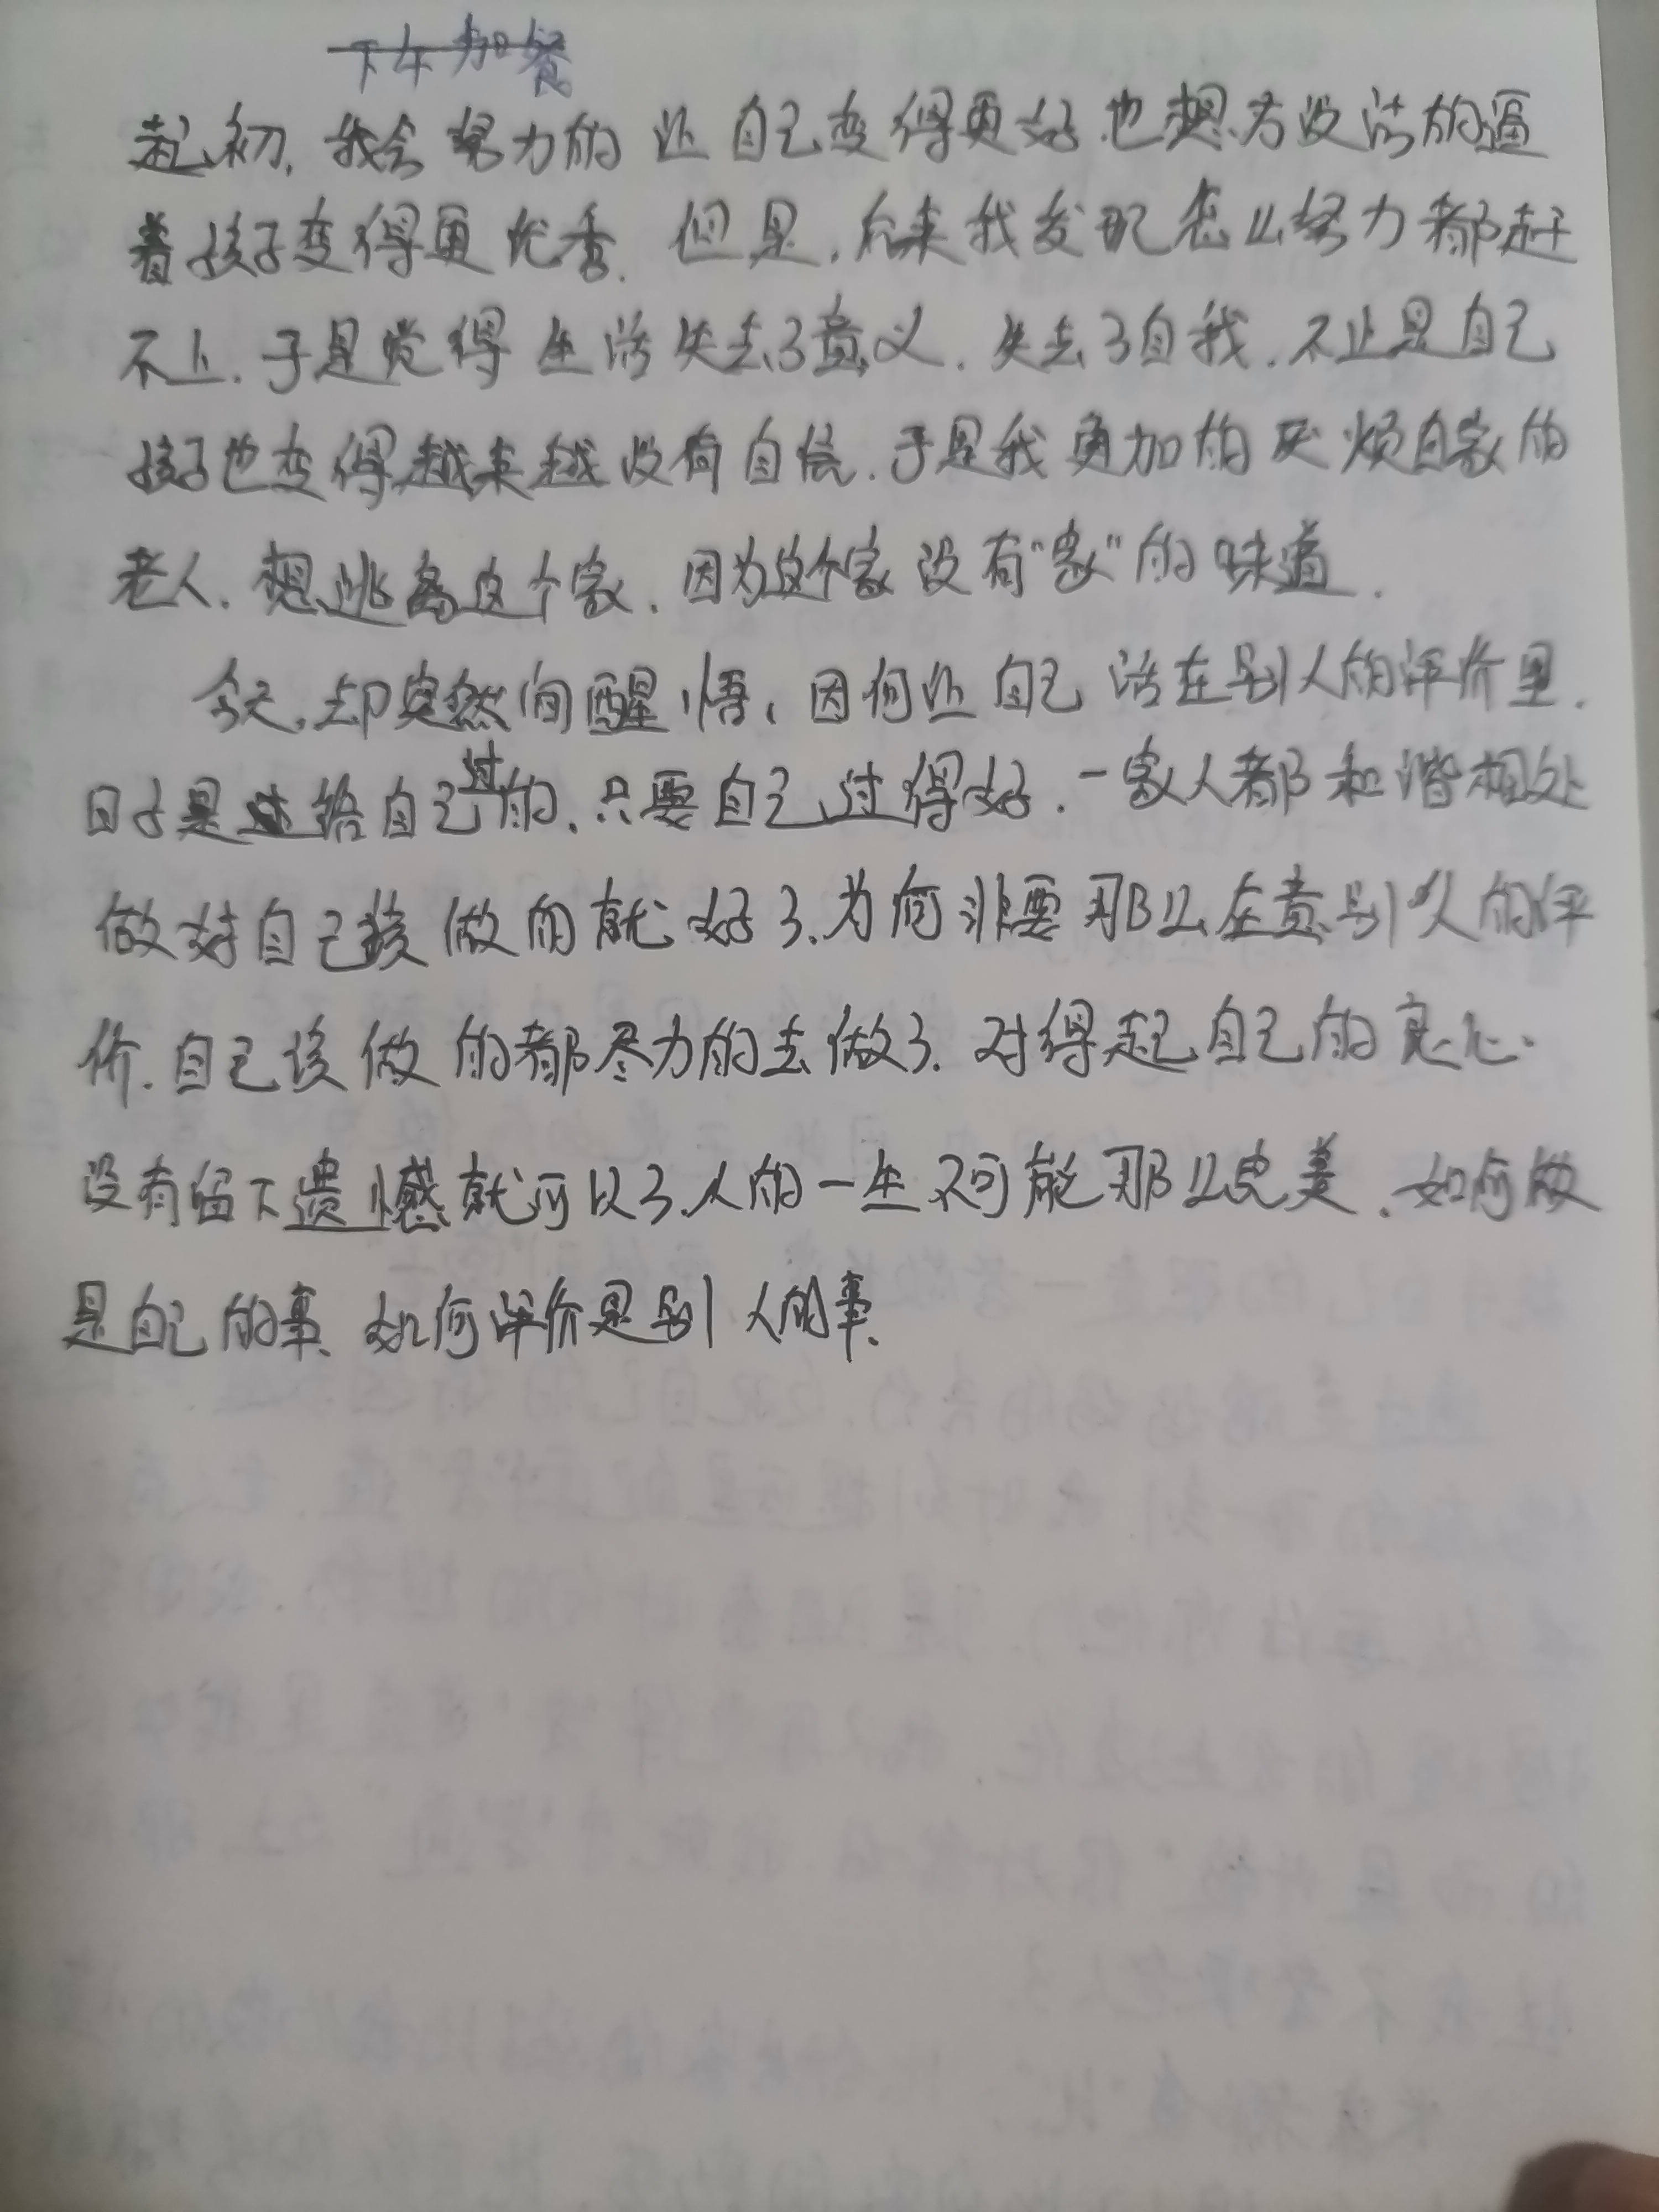 下午加餐
起初，我会努力的让自己变得更好.也想方设法的逼
着孩子变得更优秀. 但是，后来我发现怎么努力都赶
不上. 于是觉得生活失去了意义. 失去了自我. 不止是自己
孩子也变得越来越没有自信. 于是我更加的厌烦自家的
老人. 想逃离这个家. 因为这个家没有“家”的味道.
今天，却突然间醒悟，因何让自己活在别人的评价里.
日子是给自己过的，只要自己过得好. 一家人都和谐相处
做好自己该做的就好了.为何非要那么在意别人的评
价. 自己该做的都尽力的去做了. 对得起自己的良心.
没有留下遗憾就可以了.人的一生不可能那么完美. 如何做
是自己的事、如何评价是别人的事.